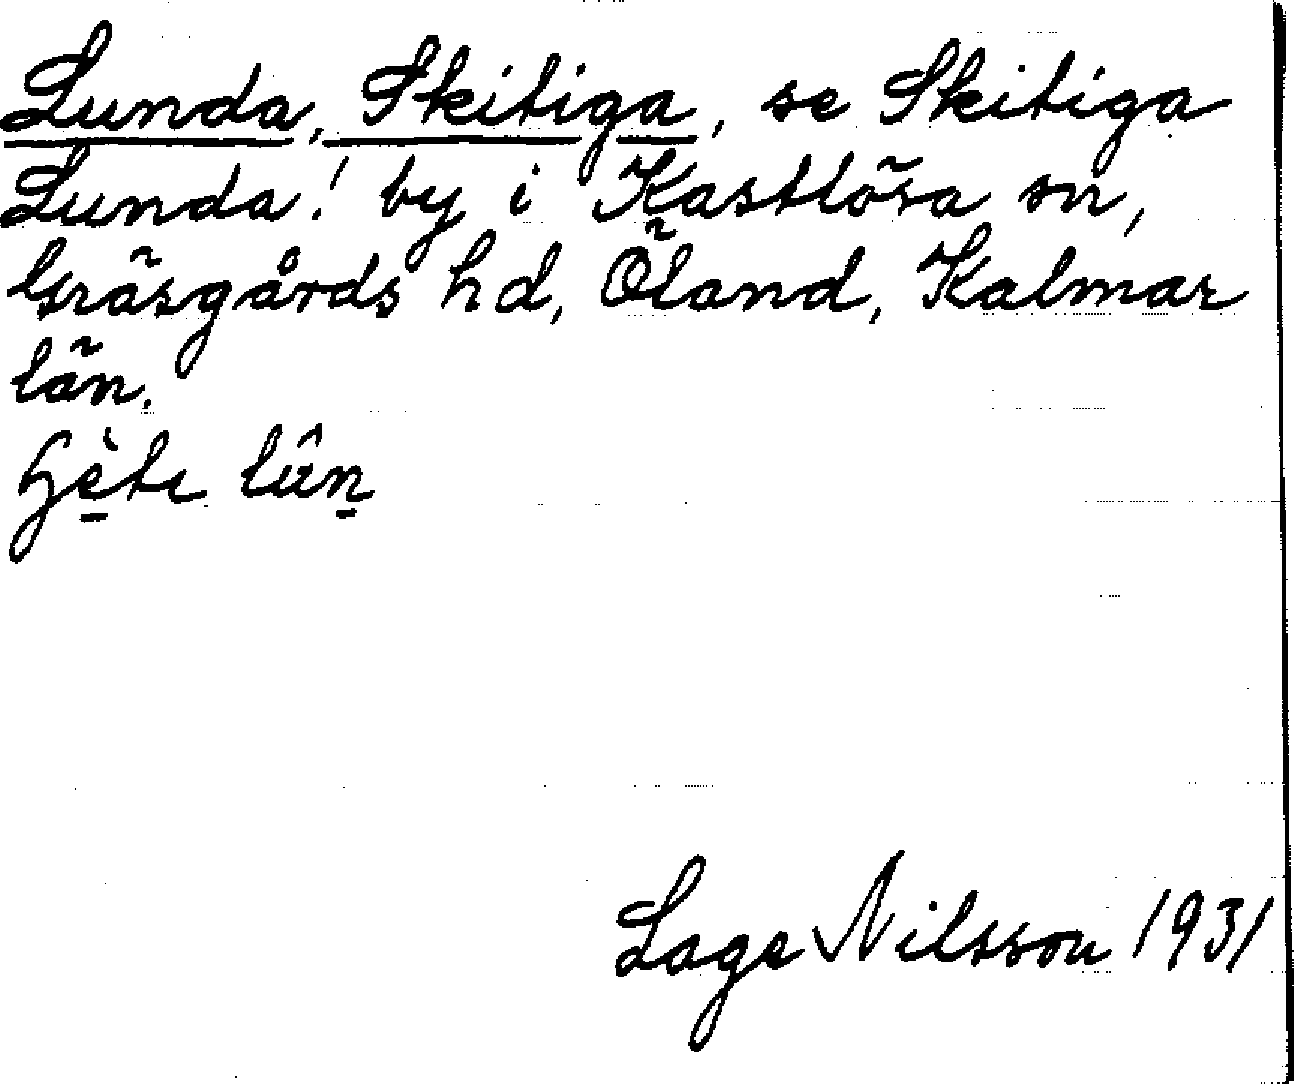 Lunda, Skitiga, se Skitiga
Lunda! by i Kastlösa sn,
Gräsgårds hd, Öland, Kalmar
län.
Lage Nilsson 1931